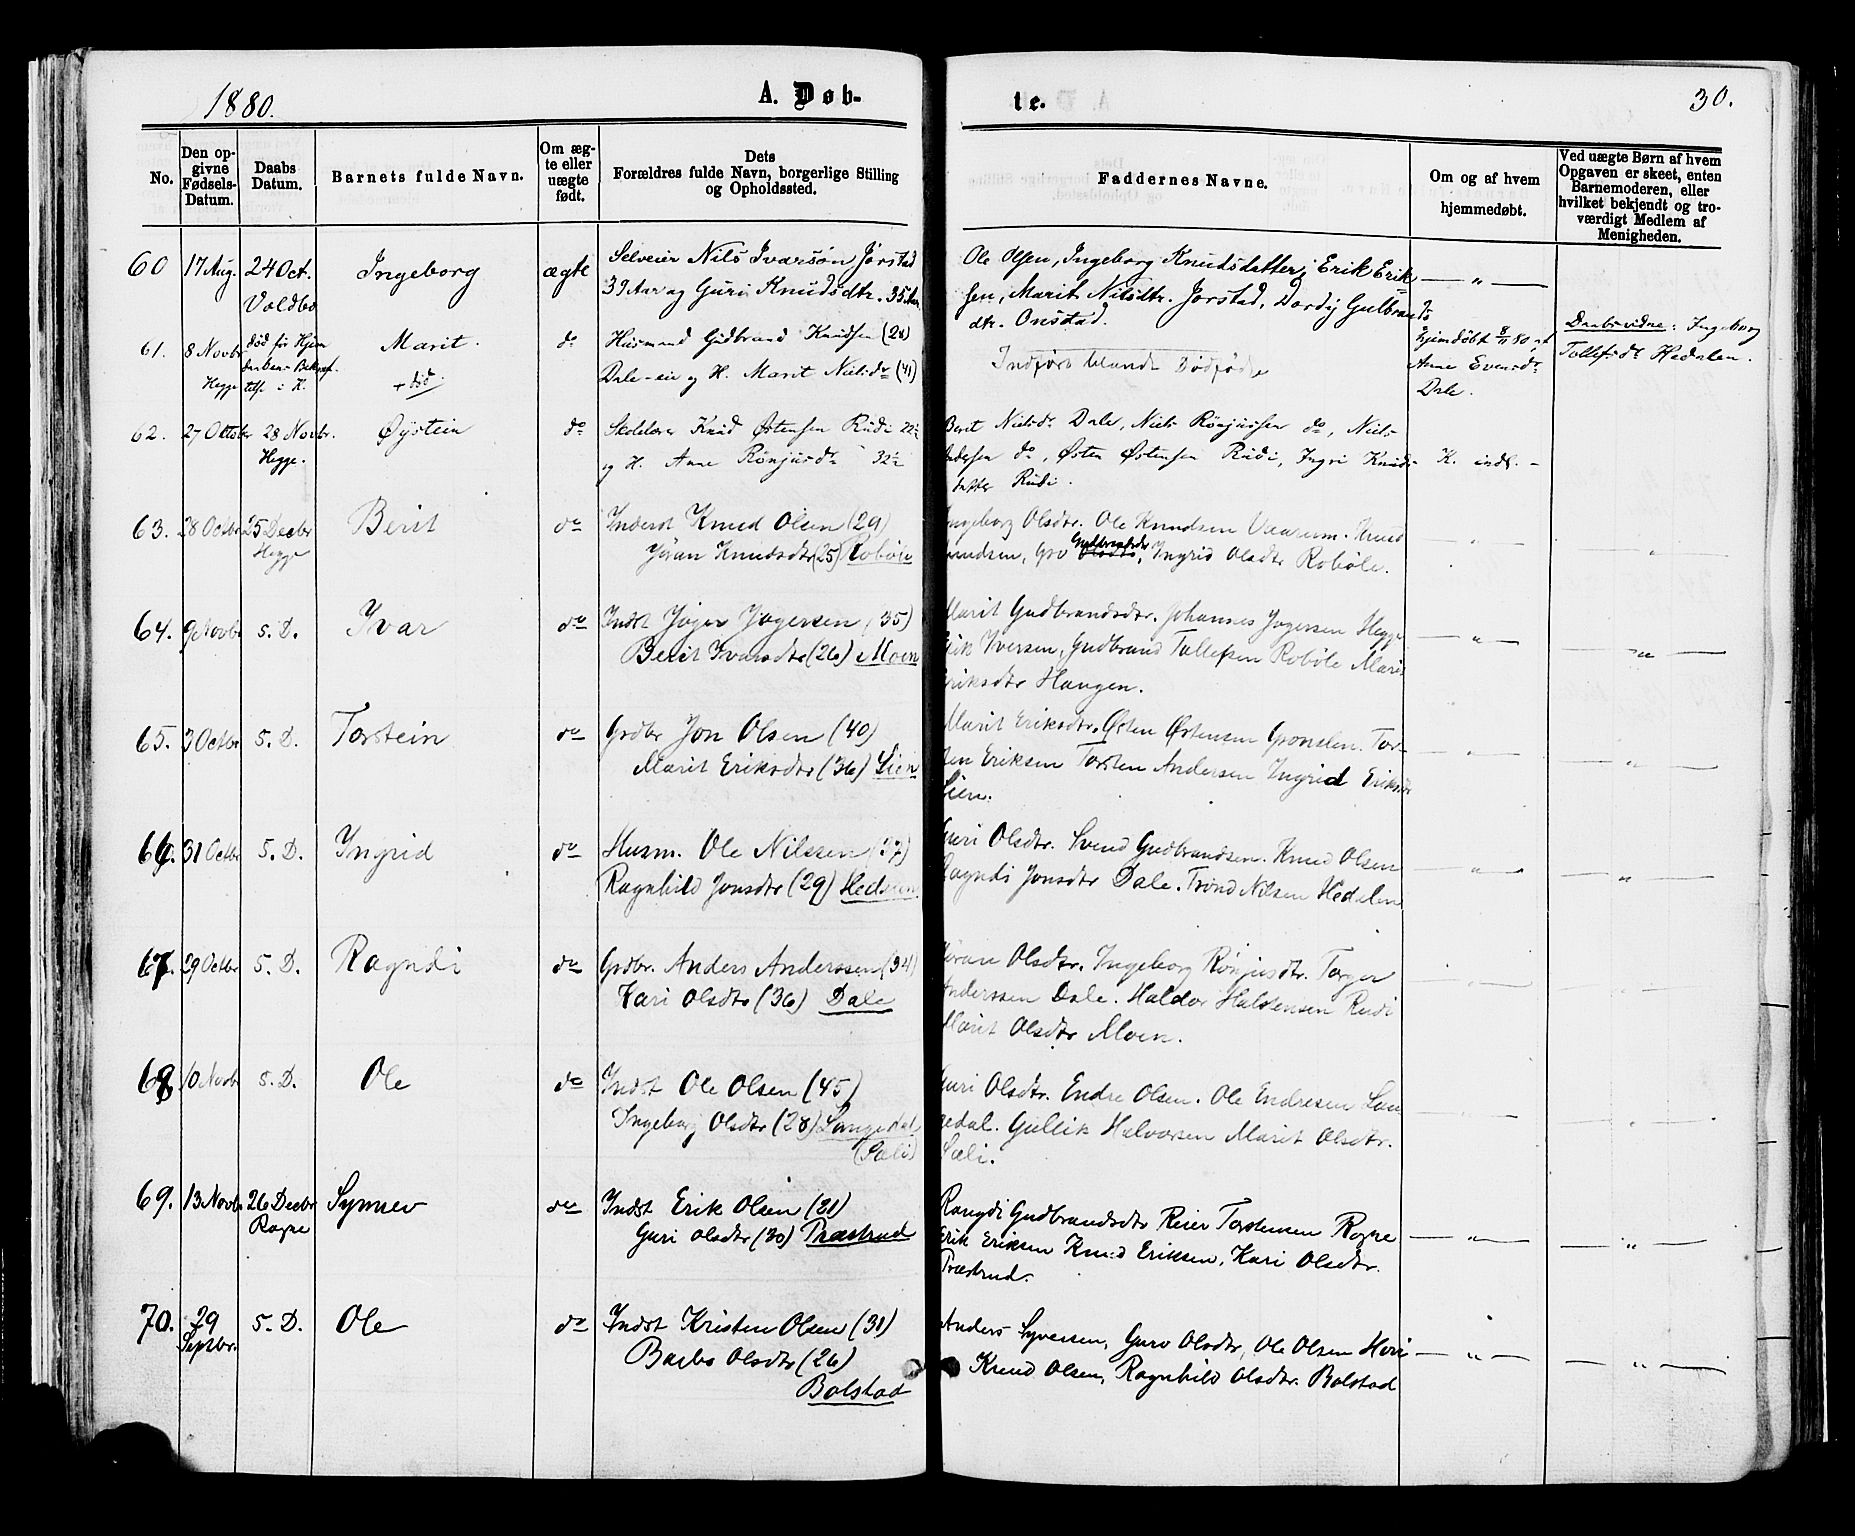 1880.
A. Døb-
te.
30.
No.
Den op-
givne
Fødsels-
Datum.
Daabs
Datum.
Barnets fulde Navn.
Om æg-
te eller
uægte
født.
Dets
Forældres fulde Navn, borgerlige Stilling
og Opholdssted.
Faddernes Navne.
Om og af hvem
hjemmedøbt.
Ved uægte Børn af hvem
Opgaven er skeet, enten
Barnemoderen, eller
hvilket bekjendt og tro-
værdigt Medlem af
Menigheden.
60 17 Aug. 24 Oct. Ingeborg ægte Selveier Nils Ivarsøn Jørstad
Voldbo 39 Aar og Guri Knudsdtr. 35 Aar
Ole Olsen, Ingeborg Knudsdatter, Erik Erik-
sen, Marit Nilsdtr. Jørstad, Dordy Gulbrands
dtr. Onstad.
61. 8 Novbr død før Hjem Marit. do Husmand Gudbrand Knudsen (28)
Hegge + død. Dale-eie og H. Marit Nielsdr (41)
telse i K.
Indført blandt Dødfødte
Hjemdøbt 8/11 80 af
Anne Evensdr
Dale.
Daabsvidne: Ingeborg
Tollefsdt Hedalen.
62. 27 Oktober 28 Novbr. Øystein do Skolelærer Knud Østensen Rudi 22½
Hegge. og H. Anne Rönjusdr 32½
Berit Nielsdr Dale, Niels Rönjussen do, Niels
Andersen do, Østen Østensen Rudi, Ingri Knuds-
datter Rudi.
K. indl. -
63. 28 Octbr 25 Decbr Berit do Inderst Knud Olsen (29)
Hegge Jöran Knudsdtr (25) Robøle
Ingeborg Olsdtr. Ole Knudsen Vaarum. Knud
Knudsen, Gro Gudbrandsdtr, Ingrid Olsdtr Robøle.
64. 9 Novbr S. D. Ivar do Indst Jøger Jøgersen (35)
Berit Ivarsdtr (26) Moen
Marit Gudbrandsdtr. Johannes Jøgersen Hegge
Erik Iversen, Gudbrand Tollefsen Robøle Marit
Eriksdtr Haugen.
65. 3 Octbr S. D. Torstein do Grdbr Jon Olsen (40)
Marit Eriksdtr (36) Lien
Marit Eriksdtr. Østen Østensen Gronolen. Tor-
sten Eriksen Torsten Andersen Ingrid Eriksdtr
Lien.
66. 31 Octbr S. D. Ingrid do Husm. Ole Nilssen (37)
Ragnhild Jonsdtr (29) Hedalen
Guri Olsdtr. Svend Gudbrandsen. Knud Olsen
Ragndi Jonsdtr Dale. Trönd Nilsen Hedalen
67. 29 Octbr S. D. Ragndi do Grdbr. Anders Anderssen (34)
Kari Olsdtr (36) Dale
Jöran Olsdtr. Ingeborg Rønjusdtr. Torger
Anderssen Dale. Haldor Halstensen Rudi
Marit Olsdtr Moen.
68 10 Novbr S. D. Ole do Indst Ole Olsen (45)
Ingeborg Olsdtr (28) Langedal
(Sæli)
Guri Olsdtr. Endre Olsen. Ole Endresen Lan
gedal. Gullik Halvorsen Marit Olsdtr.
Sæli.
69. 13 Novbr 26 Decbr Synnev do Indst Erik Olsen (21)
Rogne Guri Olsdtr (30) Præstrud
Rangdi Gudbrandsdtr Reier Torstensen Rogne
Erik Eriksen Knud Eriksen, Kari Olsdtr.
Præstrud.
70. 29 S. D. Ole do Indst Kristen Olsen (31)
Septbr. Barbo Olsdtr (26)
Bolstad
Anders Syversen, Guro Olsdtr, Ole Olsen Hovi
Knud Olsen, Ragnhild Olsdtr. Bolstad